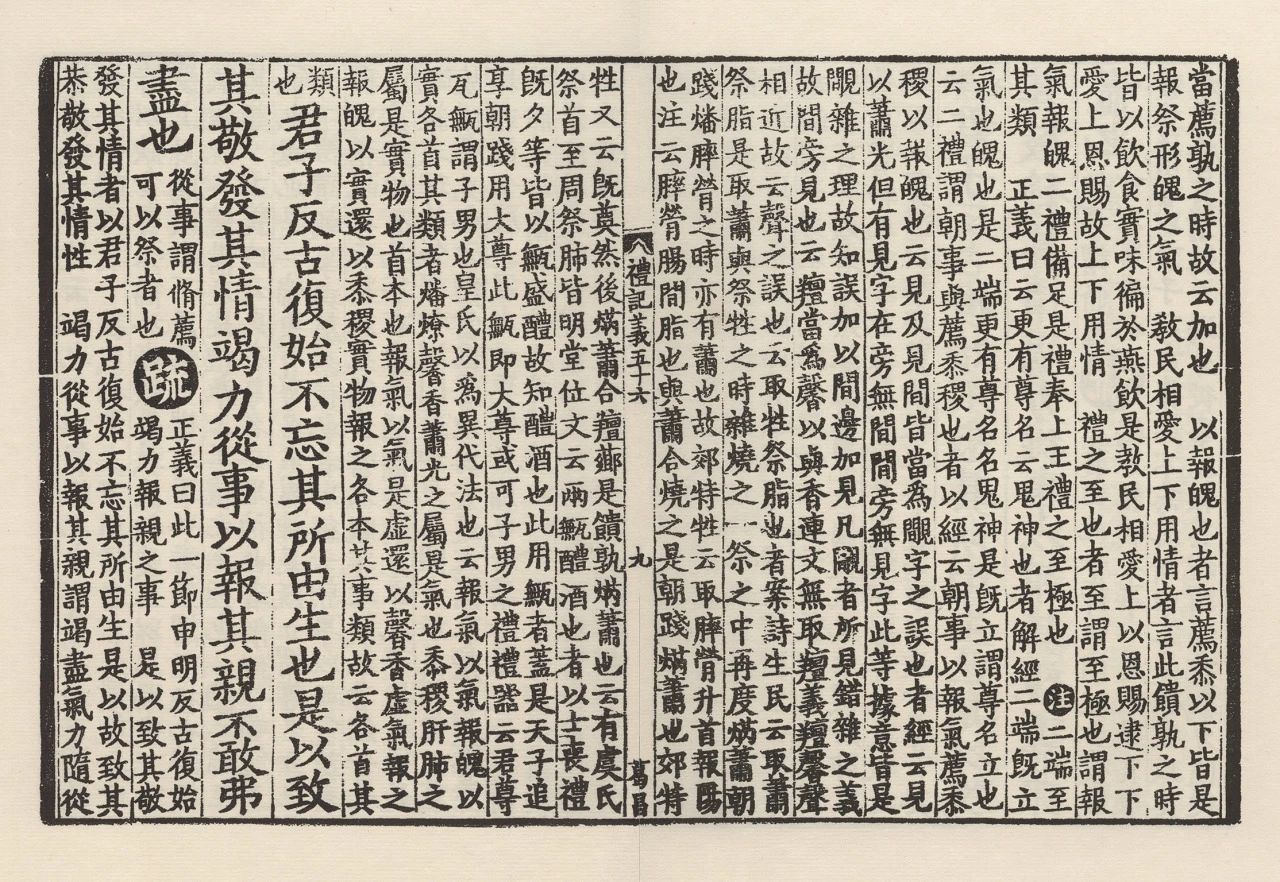 當薦孰之時故云加也　以報魄也者言薦黍以下皆是
報祭形魄之氣　教民相愛上下用情者言此饋孰之時
皆以飲食實味徧於燕飲是教民相愛上以恩賜逮下下
愛上恩賜故上下用情　禮之至也者至謂至極也謂報
氣報魄二禮備足是禮奉上王禮之至極也　注二端至
其類　正義曰云更有尊名云䰟神也者解經二端旣立
氣也魄也是二端更有尊名名䰟神是旣立謂尊名立也
云二禮謂朝事與薦黍稷也者以經云朝事以報氣薦黍
稷以報魄也云見及見間皆當爲覸字之誤也者經云見
以蕭光但有見字在旁無間間旁無見字此等據意皆是
覸雜之理故知誤加以間邊加見凡覸者所見錯雜之義
故間旁見也云羶當爲馨以與香連文無取羶義羶馨聲
相近故云聲之誤也云取牲祭脂也者案詩生民云取蕭
祭脂是取蕭與祭牲之時雜燒之一祭之中再度焫蕭朝
踐燔膟膋之時亦有蕭也故郊特牲云取膟膋升首報陽
也注云膟膋腸間脂也與蕭合燒之是朝踐焫蕭也郊特
禮記義五十六　九　葛昌
牲又云旣奠然後焫蕭合羶薌是饋孰焫蕭也云有虞氏
祭首至周祭肺皆明堂位文云兩甒醴酒也者以士喪禮
旣夕等皆以甒盛醴故知醴酒也此用甒者蓋是天子追
享朝踐用大尊此甒即大尊或可子男之禮禮器云君尊
瓦甒謂子男也皇氏以爲異代法也云報氣以氣報魄以
實各首其類者燔燎馨香蕭光之屬是氣也黍稷肝肺之
屬是實物也首本也報氣以氣是虛還以馨香虛氣報之
報魄以實還以黍稷實物報之各本其事類故云各首其
類也　君子反古復始不忘其所由生也是以致
其敬發其情竭力從事以報其親不敢弗
盡也　從事謂脩薦可以祭者也　疏　正義曰此一節申明反古復始竭力報親之事　是以致其敬
發其情者以君子反古復始不忘其所由生是以故致其
恭敬發其情性　竭力從事以報其親謂竭盡氣力隨從